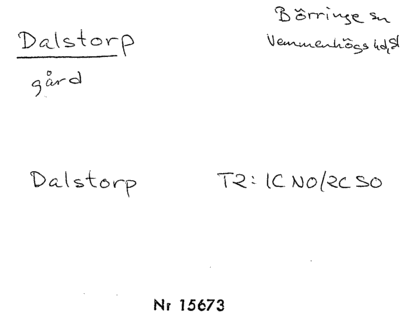 Dalstorp
gård
Börringe sn
Vemmenhögs hd, Sk
Dalstorp
T2: 1C NO/2C SO
Nr 15673